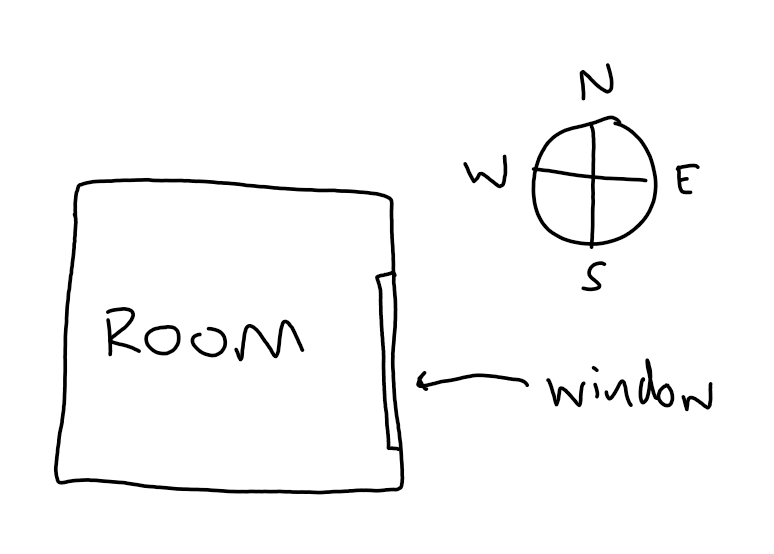 N
W E
S
ROOM
window